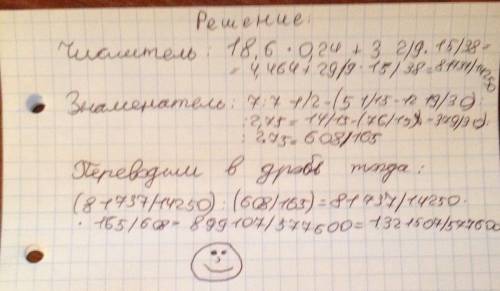 Решение:
Числитель: 18,6 · 0,24 + 3 2/9 · 15/38 =
= 4,464 + 29/9 · 15/38 = 8 1737/14250
Знаменатель: 7:7 1/2 - (5 1/15 - 12 19/30):
:2,75 = 14/15 - (76/15 - 379/30):
:2,75 = 608/165
Переводим в дробь тогда:
(8 1737/14250) : (608/165) = 8 1737/14250 ·
· 165/608 = 899107/577600 = 1 321507/577600